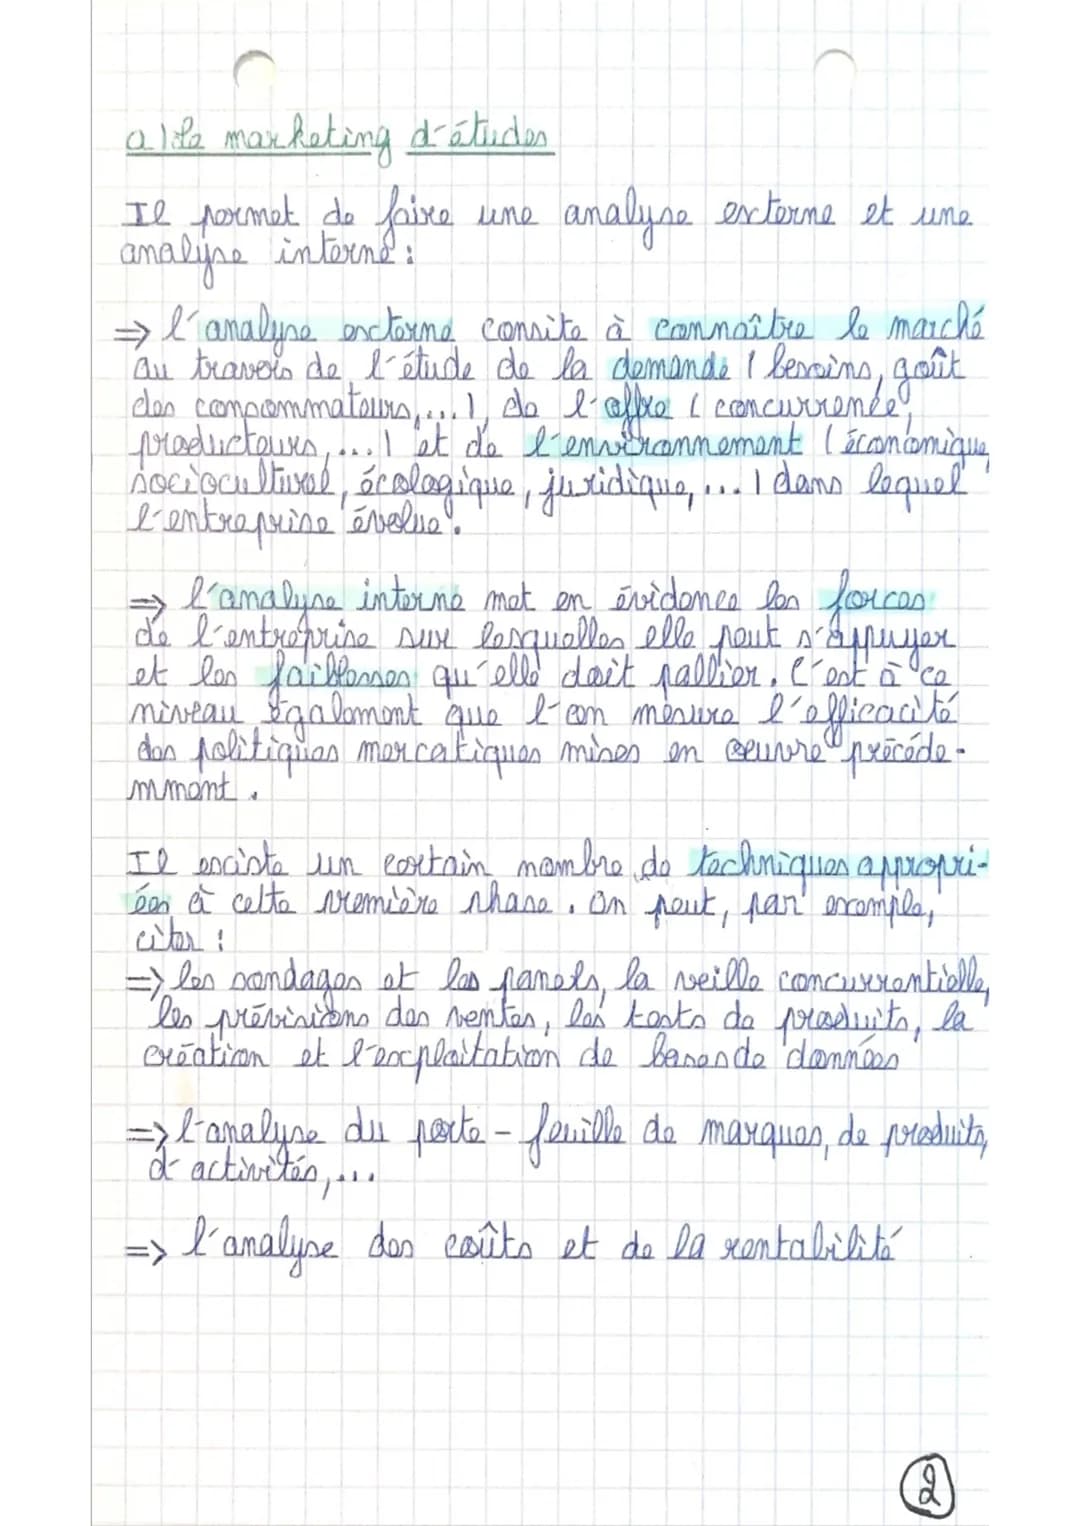 a) Le marketing d'études
Il permet de faire une analyse externe et une
analyse interne :
=> l'analyse externe consite à connaître le marché
au travers de l'étude de la demande ( besoins, goût
des consommateurs,...), de l'offre ( concurrence,
producteurs,...) et de l'environnement ( économique,
socioculturel, écologique, juridique,...) dans lequel
l'entreprise évolue.
=> l'analyse interne met en évidence les forces
de l'entreprise sur lesquelles elle peut s'appuyer
et les faiblesses qu'elle doit pallier. C'est à ce
niveau également que l'on mesure l'efficacité
des politiques mercatiques mises en oeuvre précéde-
mment.
Il existe un certain nombre de techniques appropri-
ées à cette première phase. On peut, par exemple,
citer :
=> les sondages et les panels, la veille concurrentielle,
les prévisions des ventes, les tests de produits, la
création et l'exploitation de bases de données
=> l'analyse du porte-feuille de marques, de produits,
d'activités,...
=> l'analyse des coûts et de la rentabilité
2